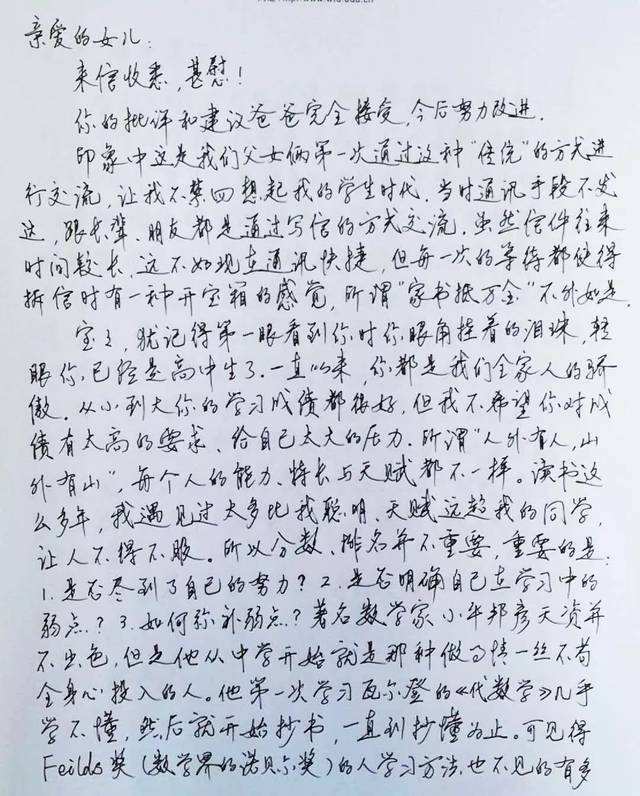 亲爱的女儿:
来信收悉,甚慰!
你的批评和建议爸爸完全接受,今后努力改进.
印象中这是我们父女俩第一次通过这种"传统"的方式进
行交流,让我不禁回想起我的学生时代.当时通讯手段不发
达,跟长辈、朋友都是通过写信的方式交流.虽然信件往来
时间较长,远不如现在通讯快捷,但每一次的等待都使得
拆信时有一种开宝箱的感觉,所谓"家书抵万金"不外如是.
宝宝,犹记得第一眼看到你时你眼角挂着的泪珠,转
眼你已经是高中生了.一直以来,你都是我们全家人的骄
傲.从小到大你的学习成绩都很好,但我不希望你对成
绩有太高的要求、给自己太大的压力.所谓"人外有人,山
外有山",每个人的能力、特长与天赋都不一样。读书这
么多年,我遇见过太多比我聪明、天赋远超我的同学,
让人不得不服。所以分数、排名并不重要,重要的是:
1.是否尽到了自己的努力?2.是否明确自己在学习中的
弱点?3.如何弥补弱点?著名数学家小平邦彦天资并
不出色,但是他从中学开始就是那种做事情一丝不苟
全身心投入的人。他第一次学习瓦尔登的《代数学》几乎
学不懂,然后就开始抄书,一直到抄懂为止。可见得
Feilds奖(数学界的诺贝尔奖)的人学习方法也不见的有多